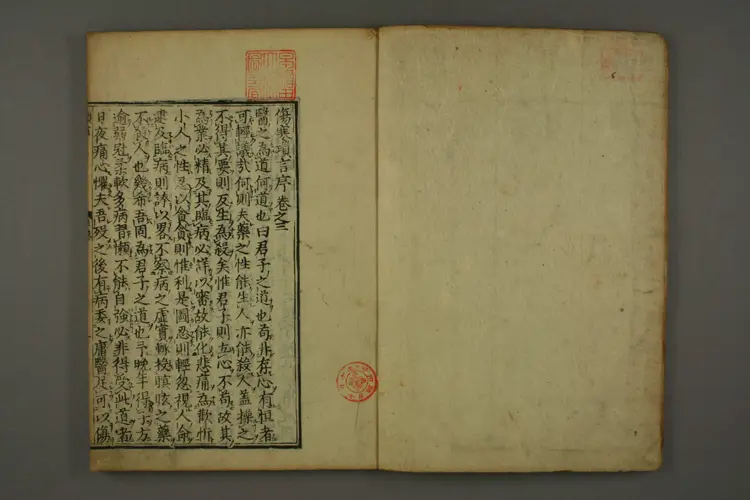 傷寒瑣言序 卷之三
醫之為道何道也曰君子之道也苟非存心有恒者
可輕議哉何則夫藥之性能生人亦能殺人蓋操之
不得其要則反生為殺矣惟君子則立心不苟故其
為業必精及其臨病必詳以審故能化悲痛為歡忻
小人之性忍以貪貪則惟利是圖忍則輕忽視人命
及臨病則誇以畧不察病之虛實輒投瞑眩之藥
不殺人也幾希吾固為君子之道也予晚年得子方
逾弱冠柔軟多病習懶不能自強必非得受此道者
日夜痛心懼夫吾歿之後有病委之庸醫足可以傷